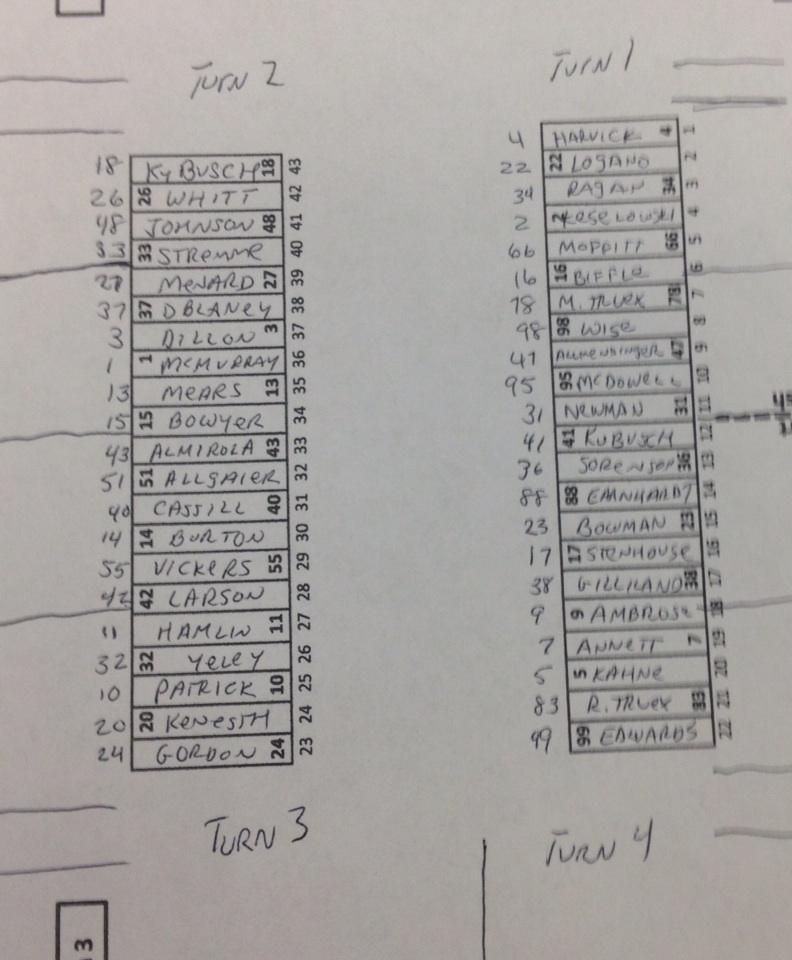 TURN 2
18 KyBUSCH 18 43
26 26 WHITT 42
48 JOHNSON 48 41
33 33 STREMME 40
27 MENARD 27 39
37 37 D BLANEY 38
3 DILLON 3 37
1 1 MCMURRAY 36
13 MEARS 13 35
15 15 BOWYER 34
43 ALMIROLA 43 33
51 51 ALLGAIER 32
40 CASSILL 40 31
14 14 BURTON 30
55 VICKERS 55 29
42 42 LARSON 28
11 HAMLIN 11 27
32 32 YELEY 26
10 PATRICK 10 25
20 20 KENESTH 24
24 GORDON 24 23
TURN 3
3
TURN 1
4 HARVICK 4 1
22 22 LOGANO 2
34 RAGAN 34 3
2 2 KESELOWSKI 4
66 MOFFITT 66 5
16 16 BIFFLE 6
78 M. TRUEX 78 7
98 98 WISE 8
47 ALLMENDINGER 47 9
95 95 MCDOWELL 10
31 NEWMAN 31 11
41 41 KUBUSCH 12
36 SORENSON 36 13
88 88 EARNHARDT 14
23 BOWMAN 23 15
17 17 STENHOUSE 16
38 GILLILAND 38 17
9 9 AMBROSE 18
7 ANNETT 7 19
5 5 KAHNE 20
83 R. TRUEX 83 21
99 99 EDWARDS 22
TURN 4